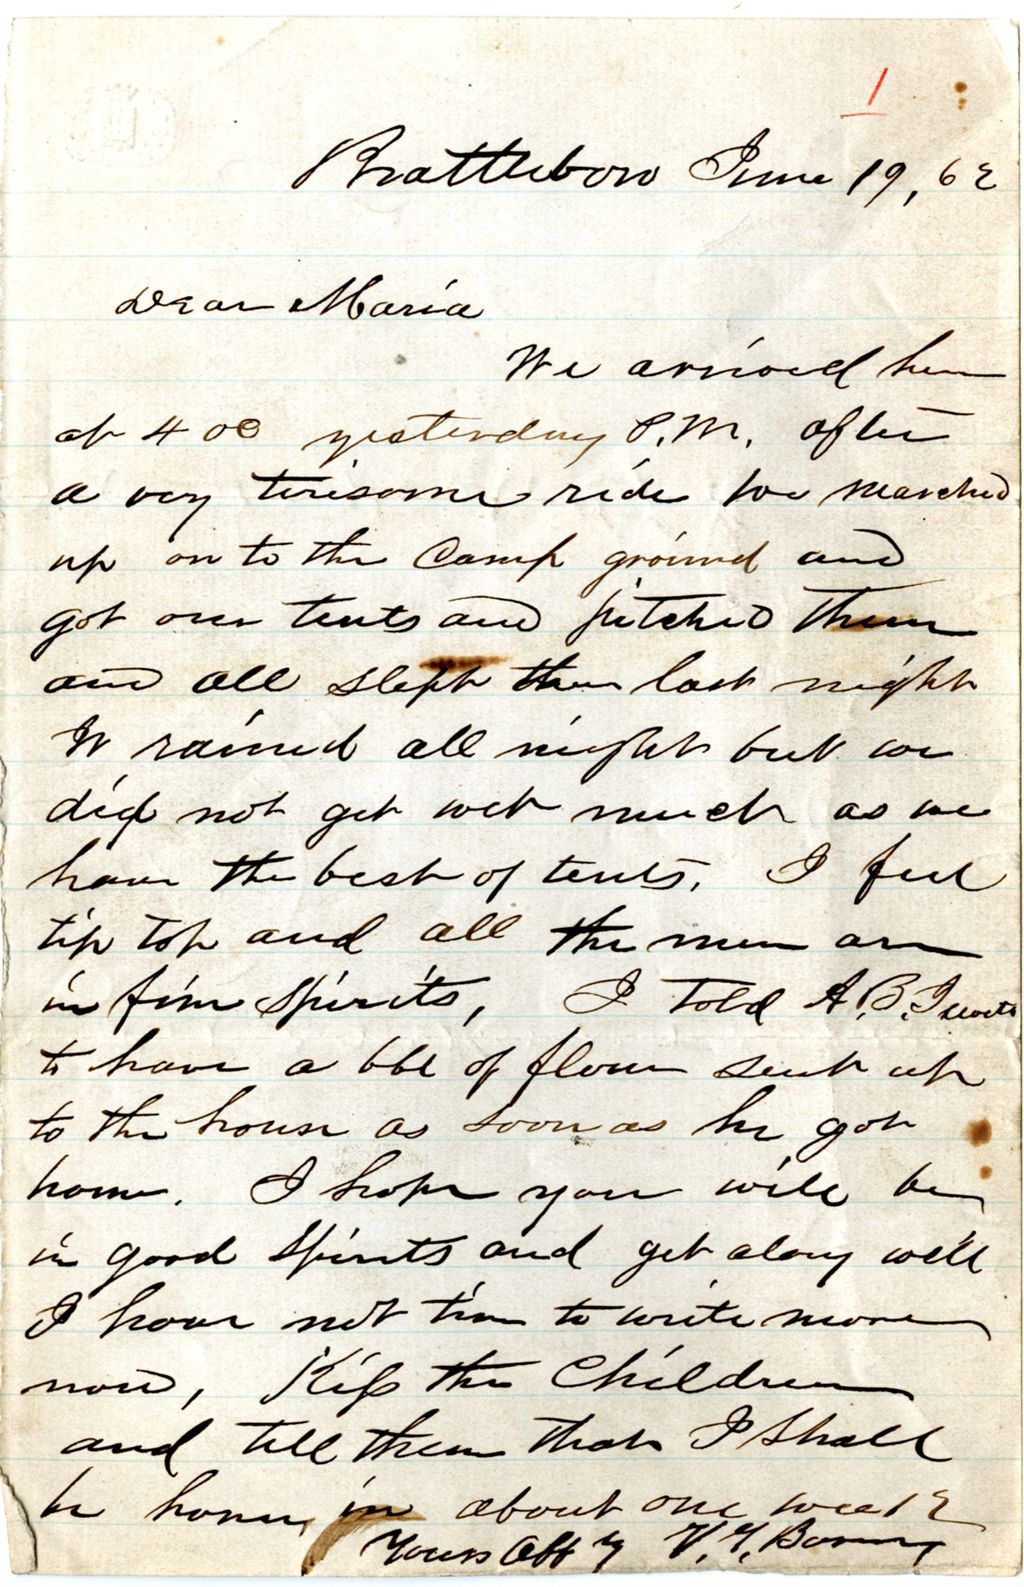 1
Brattleboro June 19, 62
Dear Maria
We arrived here
at 4 00 yesterday P.M. after
a very tiresome ride we marched
up on to the Camp ground and
got our tents and pitched them
and all slept there last night
It rained all night but we
did not get wet much as we
have the best of tents. I feel
tip top and all the men are
in fine spirits, I told A. B. Jewett
to have a bbl of flour sent up
to the house as soon as he got
home. I hope you will be
in good spirits and get along well
I have not time to write more
now, Kiss the Children
and tell them that I shall
be home in about one week
Yours Aff y